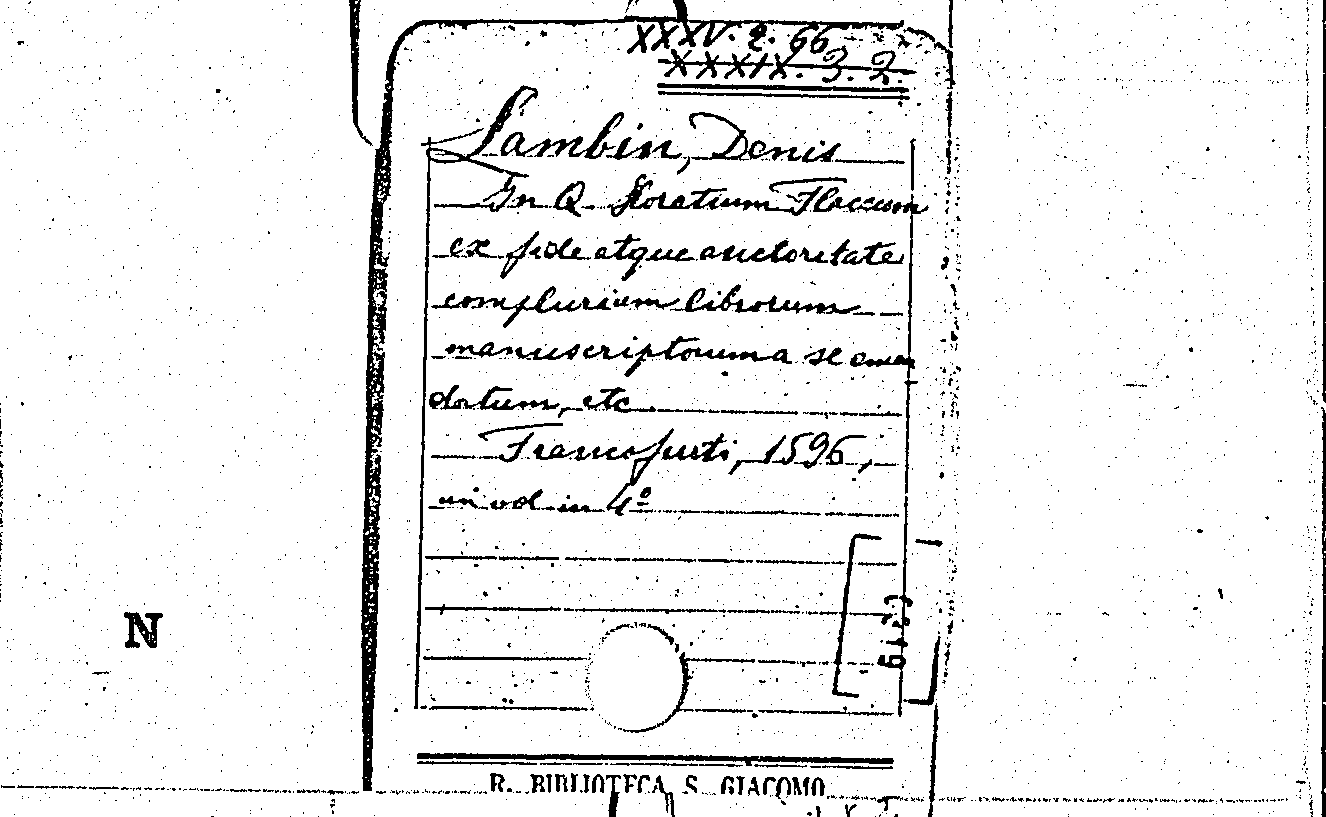 XXXV. 2. 66
XXXIX. 3. 2.
Lambin, Denis
In Q. Horatium Flaccum
ex fide atque auctoritate
complurium librorum
manuscriptorum a se emen
datum, etc.
Francofurti, 1596,
un vol. in 4º
N
R. BIBLIOTECA S. GIACOMO